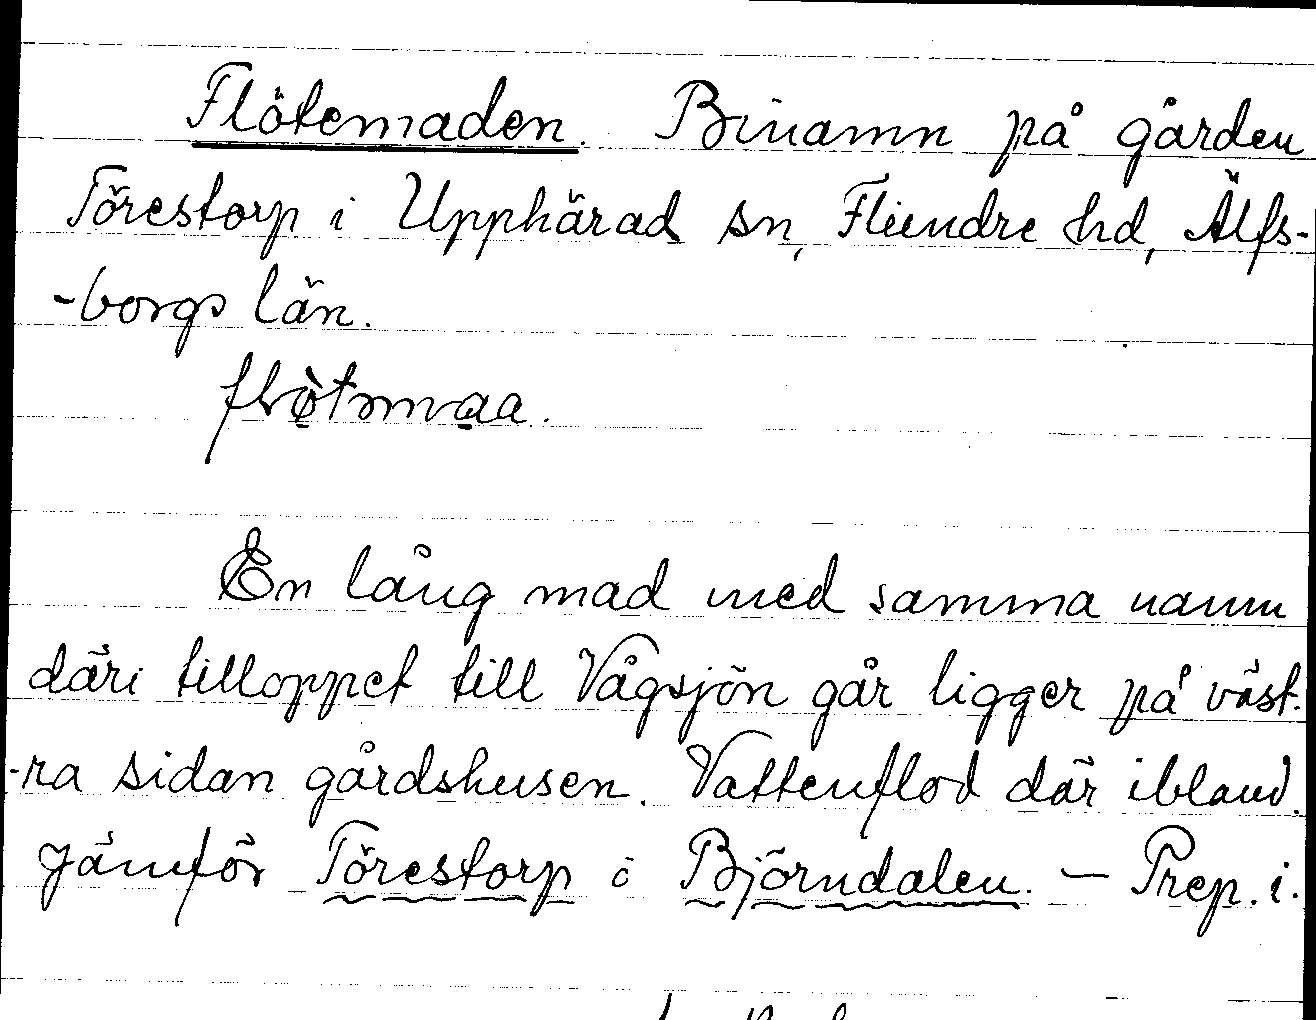 Flötemaden. Binamn på gården
Törestorp i Upphärad sn, Flundre hd, Älfs-
-borgs län.
En lång mad med samma namn
däri tilloppet till Vågsjön går ligger på väst-
-ra sidan gårdshusen. Vattenflod där ibland.
Jämför Törestorp o Björndalen. — Prep. i.